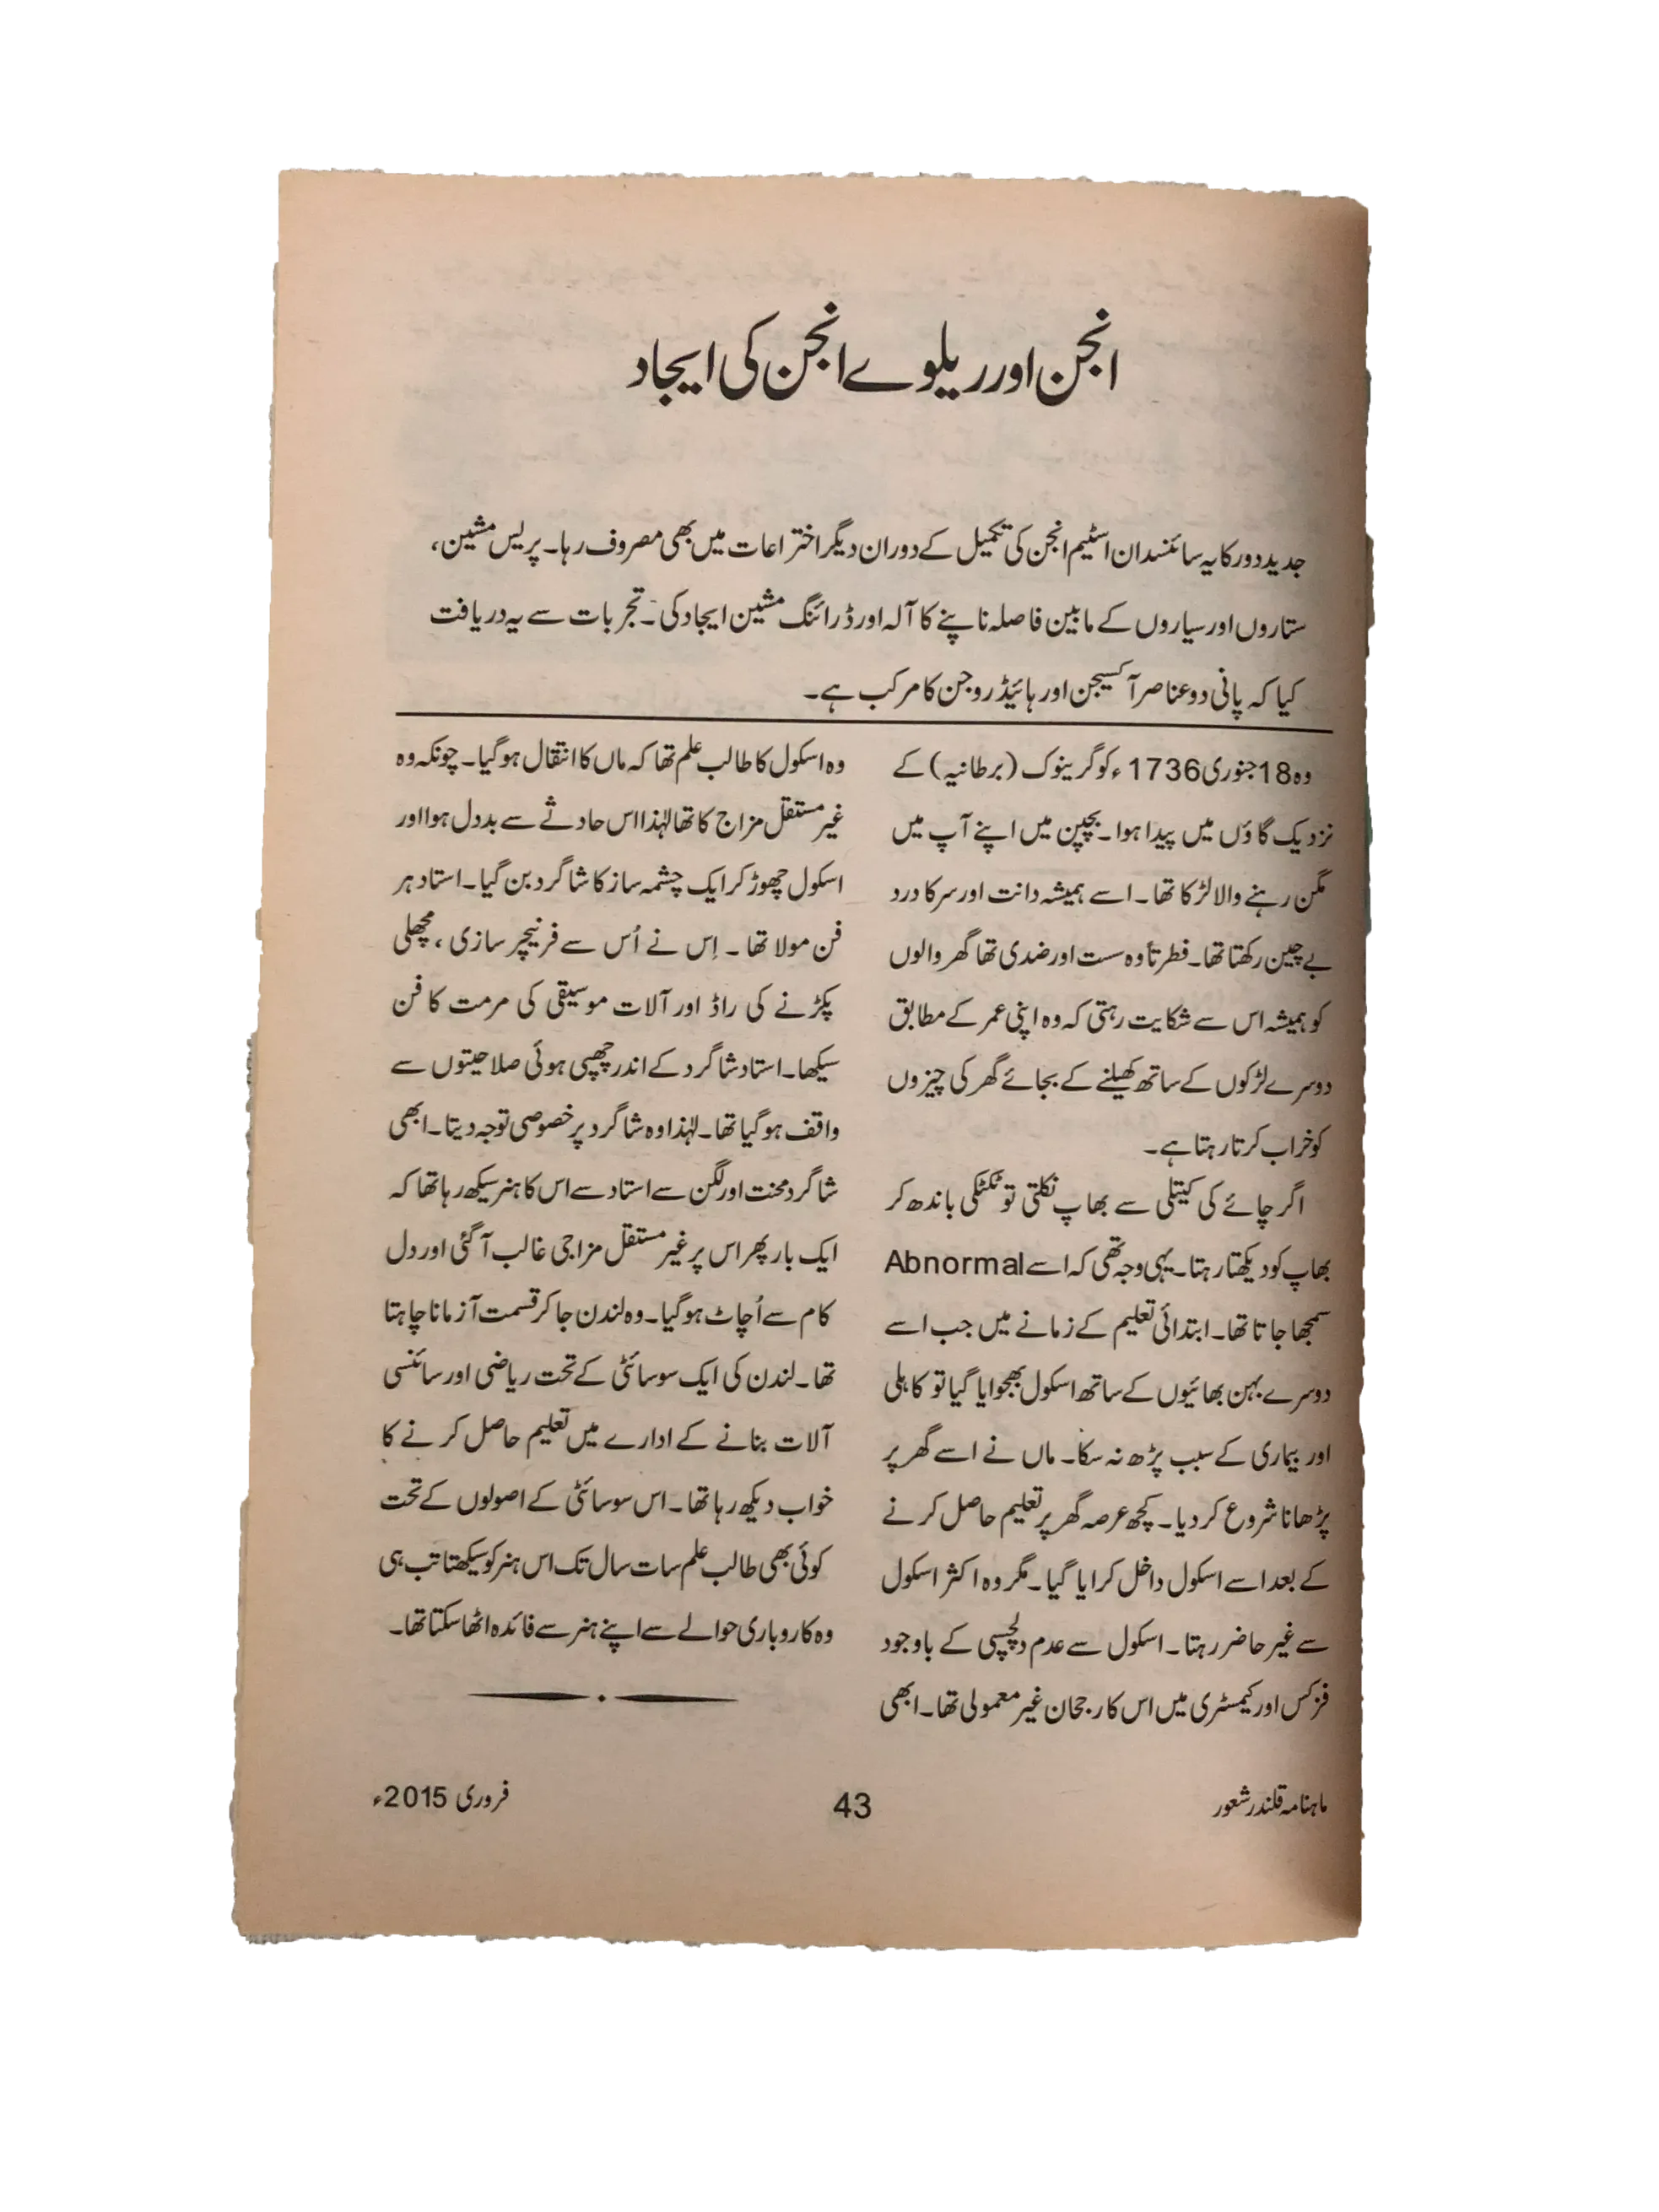 انجن اور ریلوے انجن کی ایجاد
جدید دور کا یہ سائنسدان اسٹیم انجن کی تکمیل کے دوران دیگر اختراعات میں بھی مصروف رہا۔ پریس مشین،
ستاروں اور سیاروں کے مابین فاصلہ ناپنے کا آلہ اور ڈرائنگ مشین ایجاد کی۔ تجربات سے یہ دریافت
کیا کہ پانی دو عناصر آکسیجن اور ہائیڈروجن کا مرکب ہے۔
وہ 18 جنوری 1736ء کو گرینوک (برطانیہ) کے
نزدیک گاؤں میں پیدا ہوا۔ بچپن میں اپنے آپ میں
مگن رہنے والا لڑکا تھا۔ اسے ہمیشہ دانت اور سر کا درد
بے چین رکھتا تھا۔ فطرتاً وہ سست اور ضدی تھا گھر والوں
کو ہمیشہ اس سے شکایت رہتی کہ وہ اپنی عمر کے مطابق
دوسرے لڑکوں کے ساتھ کھیلنے کے بجائے گھر کی چیزوں
کو خراب کرتا رہتا ہے۔
اگر چائے کی کیتلی سے بھاپ نکلتی تو ٹکٹکی باندھ کر
بھاپ کو دیکھتا رہتا۔ یہی وجہ تھی کہ اسے Abnormal
سمجھا جاتا تھا۔ ابتدائی تعلیم کے زمانے میں جب اسے
دوسرے بہن بھائیوں کے ساتھ اسکول بھجوایا گیا تو کاہلی
اور بیماری کے سبب پڑھ نہ سکا۔ ماں نے اسے گھر پر
پڑھانا شروع کر دیا۔ کچھ عرصہ گھر پر تعلیم حاصل کرنے
کے بعد اسے اسکول داخل کرایا گیا۔ مگر وہ اکثر اسکول
سے غیر حاضر رہتا۔ اسکول سے عدم دلچسپی کے باوجود
فزکس اور کیمسٹری میں اس کا رجحان غیر معمولی تھا۔ ابھی
وہ اسکول کا طالب علم تھا کہ ماں کا انتقال ہوگیا۔ چونکہ وہ
غیر مستقل مزاج کا تھا لہٰذا اس حادثے سے بددل ہوا اور
اسکول چھوڑ کر ایک چشمہ ساز کا شاگرد بن گیا۔ استاد ہر
فن مولا تھا ۔ اِس نے اُس سے فرنیچر سازی ، مچھلی
پکڑنے کی راڈ اور آلات موسیقی کی مرمت کا فن
سیکھا۔ استاد شاگرد کے اندر چھپی ہوئی صلاحیتوں سے
واقف ہوگیا تھا۔ لہٰذا وہ شاگرد پر خصوصی توجہ دیتا۔ ابھی
شاگرد محنت اور لگن سے استاد سے اس کا ہنر سیکھ رہا تھا کہ
ایک بار پھر اس پر غیر مستقل مزاجی غالب آگئی اور دل
کام سے اُچاٹ ہوگیا۔ وہ لندن جا کر قسمت آزمانا چاہتا
تھا۔ لندن کی ایک سوسائٹی کے تحت ریاضی اور سائنسی
آلات بنانے کے ادارے میں تعلیم حاصل کرنے کا
خواب دیکھ رہا تھا۔ اس سوسائٹی کے اصولوں کے تحت
کوئی بھی طالب علم سات سال تک اس ہنر کو سیکھتا تب ہی
وہ کاروباری حوالے سے اپنے ہنر سے فائدہ اٹھا سکتا تھا۔
ماہنامہ قلندر شعور 43 فروری 2015ء